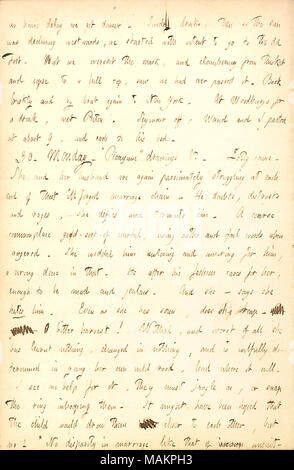 an hours delay we get dinner. Sundry drinks, then as the sun
was declining westwards, we started with intent to go to the old
Fort. But we overshot the mark, and clambering from thicket
and copse to a hill top, saw we had our passed it. Back
briskly and by boat again to New York. At Woodburys for
a drink, met Peters. Seymour off, Waud and I parted
at about 9, and each to his bed.
30. Monday. "Picayune" drawings &c. Lotty came.
She and her husband are again passionately struggling at each
end of that ill forged marriage chain. He doubts, distrusts
and rages, she defies and torments him. A coarse
commonplace good-sort-of mortal, using oaths and foul words when
angered. She watched him mending and weaving for him
a wrong done in that. He after his fashion cares for her,
enough to be mad and jealous. And she - says she
hates him. Even as she has sown does she reap.
O bitter harvest! Withal, and worst of all she
has learnt nothing, changed in nothing, and is wilfully de-
termined in going her own wild road, lead where it will.
I see no help for it. They must jangle on, or snap
the ring integrating them. It might have been hoped that
the child would draw them closer to each other, but
no! "No disparity in marriage like that of unsuit-
a alamy stock photo
alamy
Image ID: MAKPH3
www.alamy.com